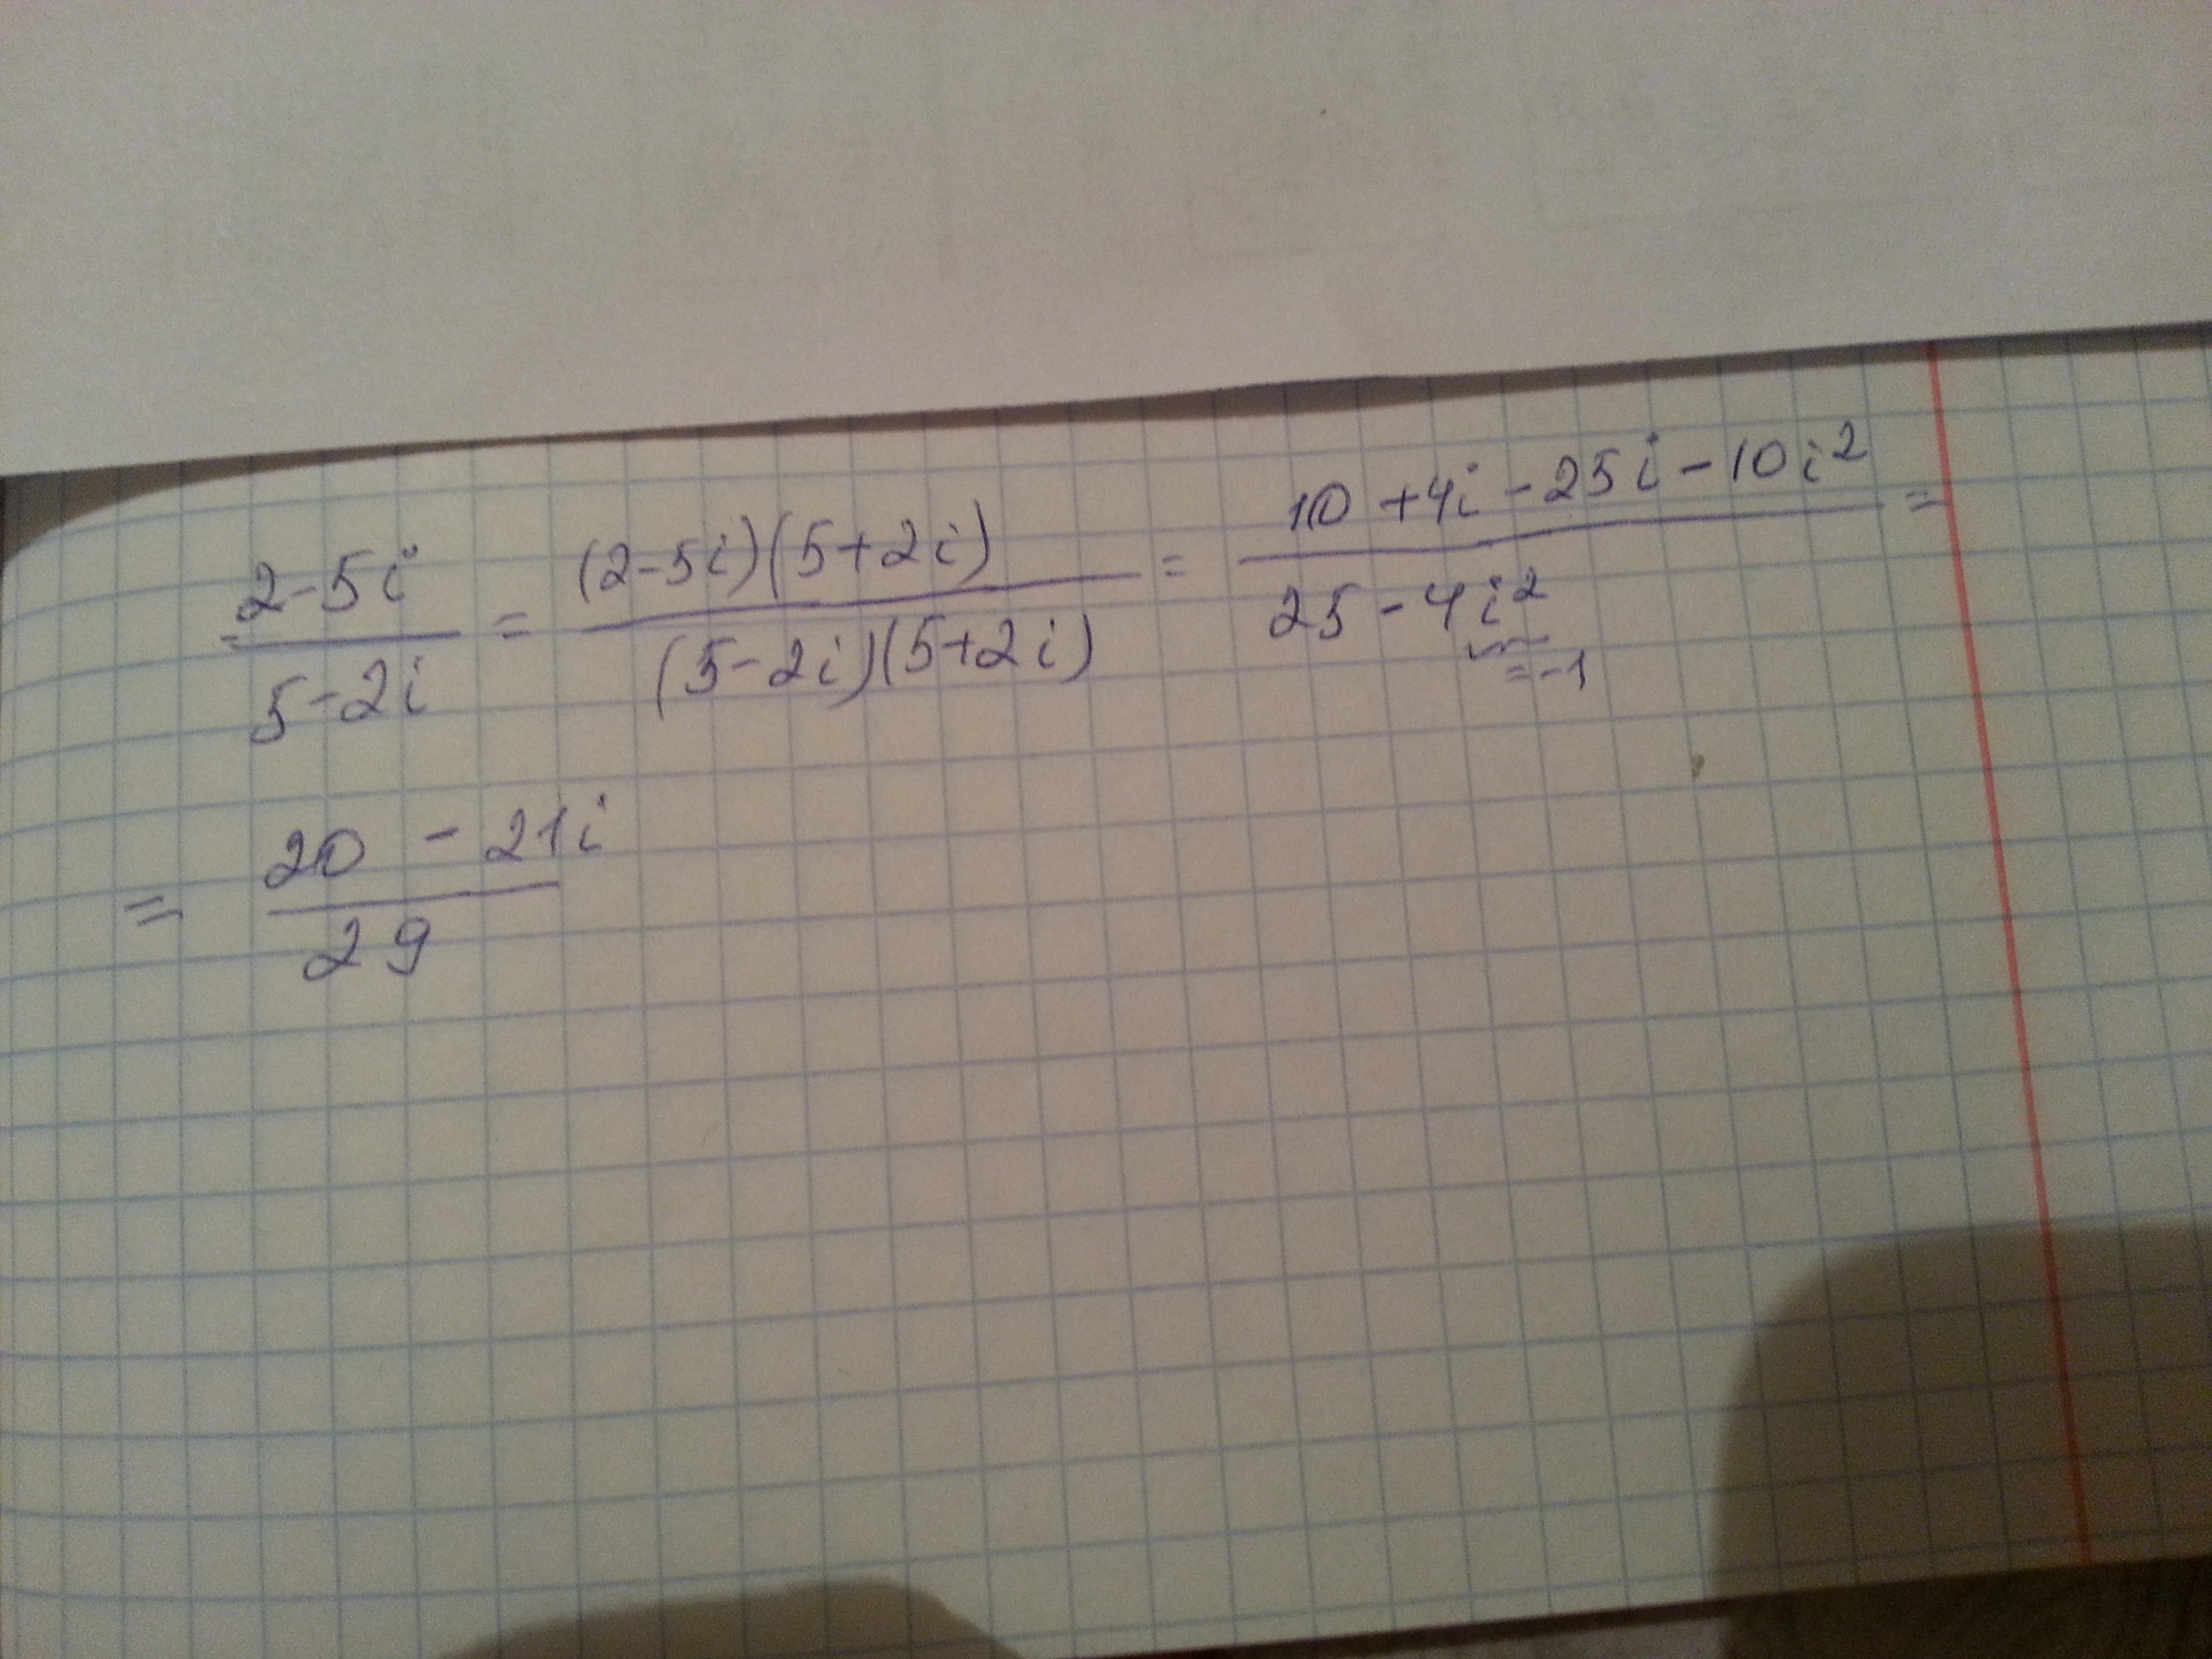 (2-5i)/(5-2i) = ((2-5i)(5+2i))/((5-2i)(5+2i)) = (10+4i-25i-10i²)/(25-4i²) =
=-1
= (20-21i)/29